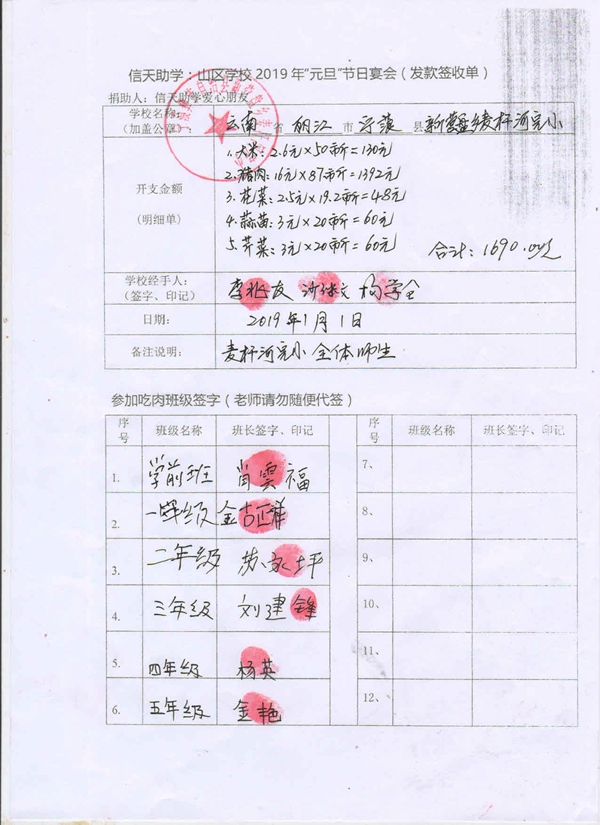 信天助学：山区学校2019年“元旦”节日宴会（发款签收单）
捐助人：信天助学爱心朋友
学校名称：
（加盖公章）
云南 省 丽江 市 宁蒗 县 新营盘乡麦杆河完小
开支金额
（明细单）
1.大米：2.6元×50市斤=130元
2.猪肉：16元×87市斤=1392元
3.花菜：2.5元×19.2市斤=48元
4.蒜苗：3元×20市斤=60元
5.芹菜：3元×20市斤=60元
合计：1690.00元
学校经手人：
（签字、印记）
李 友 杨学全
日期：
2019年1月1日
备注说明：
麦杆河完小 全体师生
参加吃肉班级签字（老师请勿随便代签）
序号 班级名称 班长签字、印记 序号 班级名称 班长签字、印记
1. 学前班 肖雲福 7、
2. 一年级 金古正祥 8、
3. 二年级 苏永坪 9、
4. 三年级 刘建锋 10、
5. 四年级 杨英 11、
6. 五年级 金艳 12、